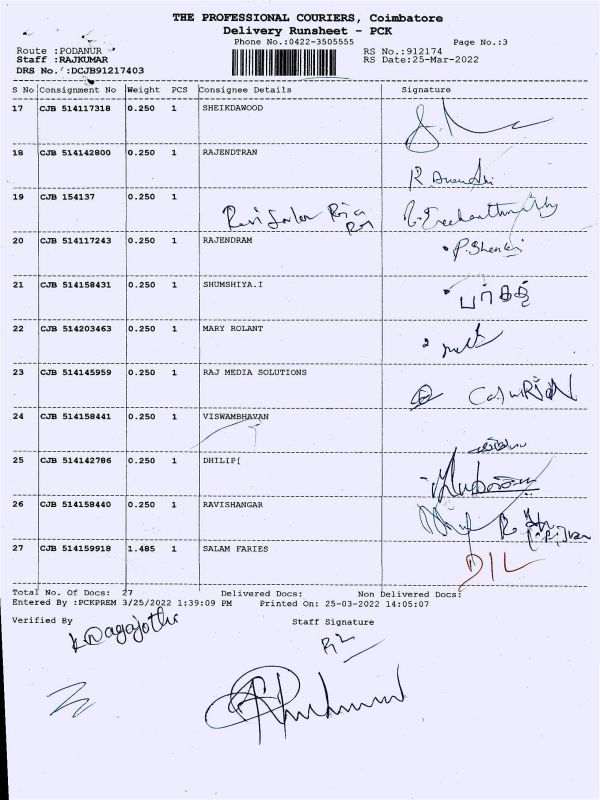 THE PROFESSIONAL COURIERS, Coimbatore
Delivery Runsheet - PCK
Phone No.:0422-3505555 Page No.:3
Route :PODANUR RS No.:912174
Staff :RAJKUMAR RS Date:25-Mar-2022
DRS No.:DCJB91217403
S No Consignment No Weight PCS Consignee Details Signature
17 CJB 514117318 0.250 1 SHEIKDAWOOD
18 CJB 514142800 0.250 1 RAJENDTRAN
19 CJB 154137 0.250 1
20 CJB 514117243 0.250 1 RAJENDRAM
21 CJB 514158431 0.250 1 SHUMSHIYA.I
22 CJB 514203463 0.250 1 MARY ROLANT
23 CJB 514145959 0.250 1 RAJ MEDIA SOLUTIONS
24 CJB 514158441 0.250 1 VISWAMBHAVAN
25 CJB 514142786 0.250 1 DHILIP[
26 CJB 514158440 0.250 1 RAVISHANGAR
27 CJB 514159918 1.485 1 SALAM FARIES
DIL
Total No. Of Docs: 27 Delivered Docs: Non Delivered Docs:
Entered By :PCKPREM 3/25/2022 1:39:09 PM Printed On: 25-03-2022 14:05:07
Verified By Staff Signature